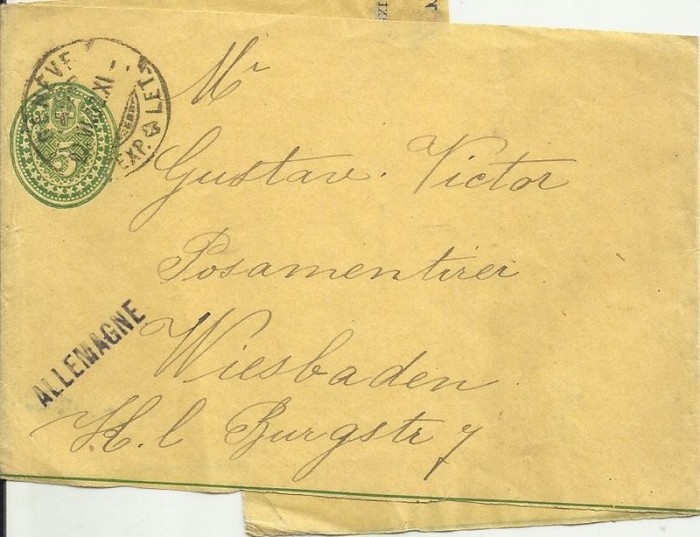 GENÈVE
EXP. LETT.
XI
5
Mr
Gustav. Victor
Posamentirer
Wiesbaden
Kl Burgstr 7
ALLEMAGNE